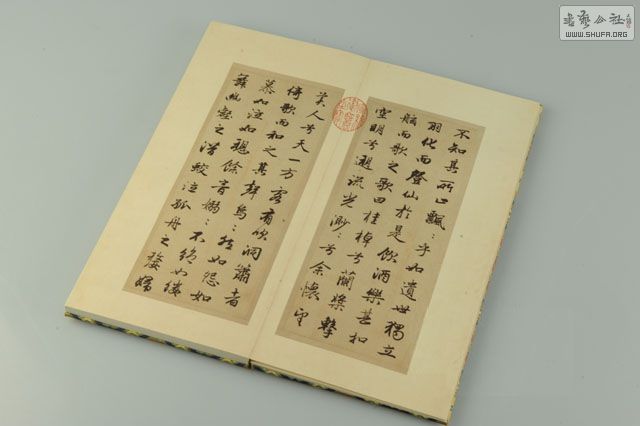 不知其所止飄〻乎如遺世獨立
羽化而登仙於是飲酒樂甚扣
舷而歌之歌曰桂棹兮蘭槳擊
空明兮遡流光渺〻兮余懷望
美人兮天一方客有吹洞簫者
倚歌而和之其聲嗚〻然如怨如
慕如泣如愬餘音嫋〻不絕如縷
舞幽壑之潛蛟泣孤舟之嫠婦
書藝公社
WWW.SHUFA.ORG